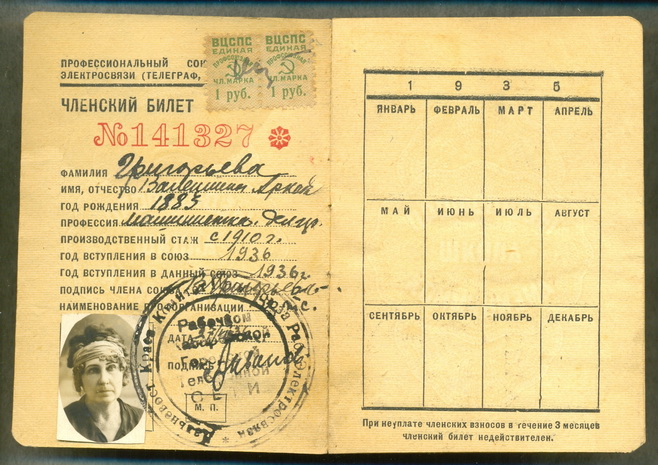 ПРОФЕССИОНАЛЬНЫЙ СОЮ
ЭЛЕКТРОСВЯЗИ (ТЕЛЕГРАФ,
ВЦСПС ВЦСПС
ЕДИНАЯ ЕДИНАЯ
ПРОФСОЮЗН. ПРОФСОЮЗН.
ЧЛ. МАРКА ЧЛ. МАРКА
1 руб. 1 руб.
ЧЛЕНСКИЙ БИЛЕТ
№141327
ФАМИЛИЯ Григорьева
ИМЯ, ОТЧЕСТВО Валентина Аркад
ГОД РОЖДЕНИЯ 1885
ПРОФЕССИЯ
ПРОИЗВОДСТВЕННЫЙ СТАЖ с 1910 г.
ГОД ВСТУПЛЕНИЯ В СОЮЗ 1936
ГОД ВСТУПЛЕНИЯ В ДАННЫЙ СОЮЗ 1936г
ПОДПИСЬ ЧЛЕНА СОЮЗА Григорьева
НАИМЕНОВАНИЕ ПРОФОРГАНИЗАЦИИ
ДАТА
ПОДПИСЬ
М. П.
Рабочком
Электросвязи
1935
ЯНВАРЬ ФЕВРАЛЬ МАРТ АПРЕЛЬ
МАЙ ИЮНЬ ИЮЛЬ АВГУСТ
СЕНТЯБРЬ ОКТЯБРЬ НОЯБРЬ ДЕКАБРЬ
При неуплате членских взносов в течение 3 месяцев
членский билет недействителен.